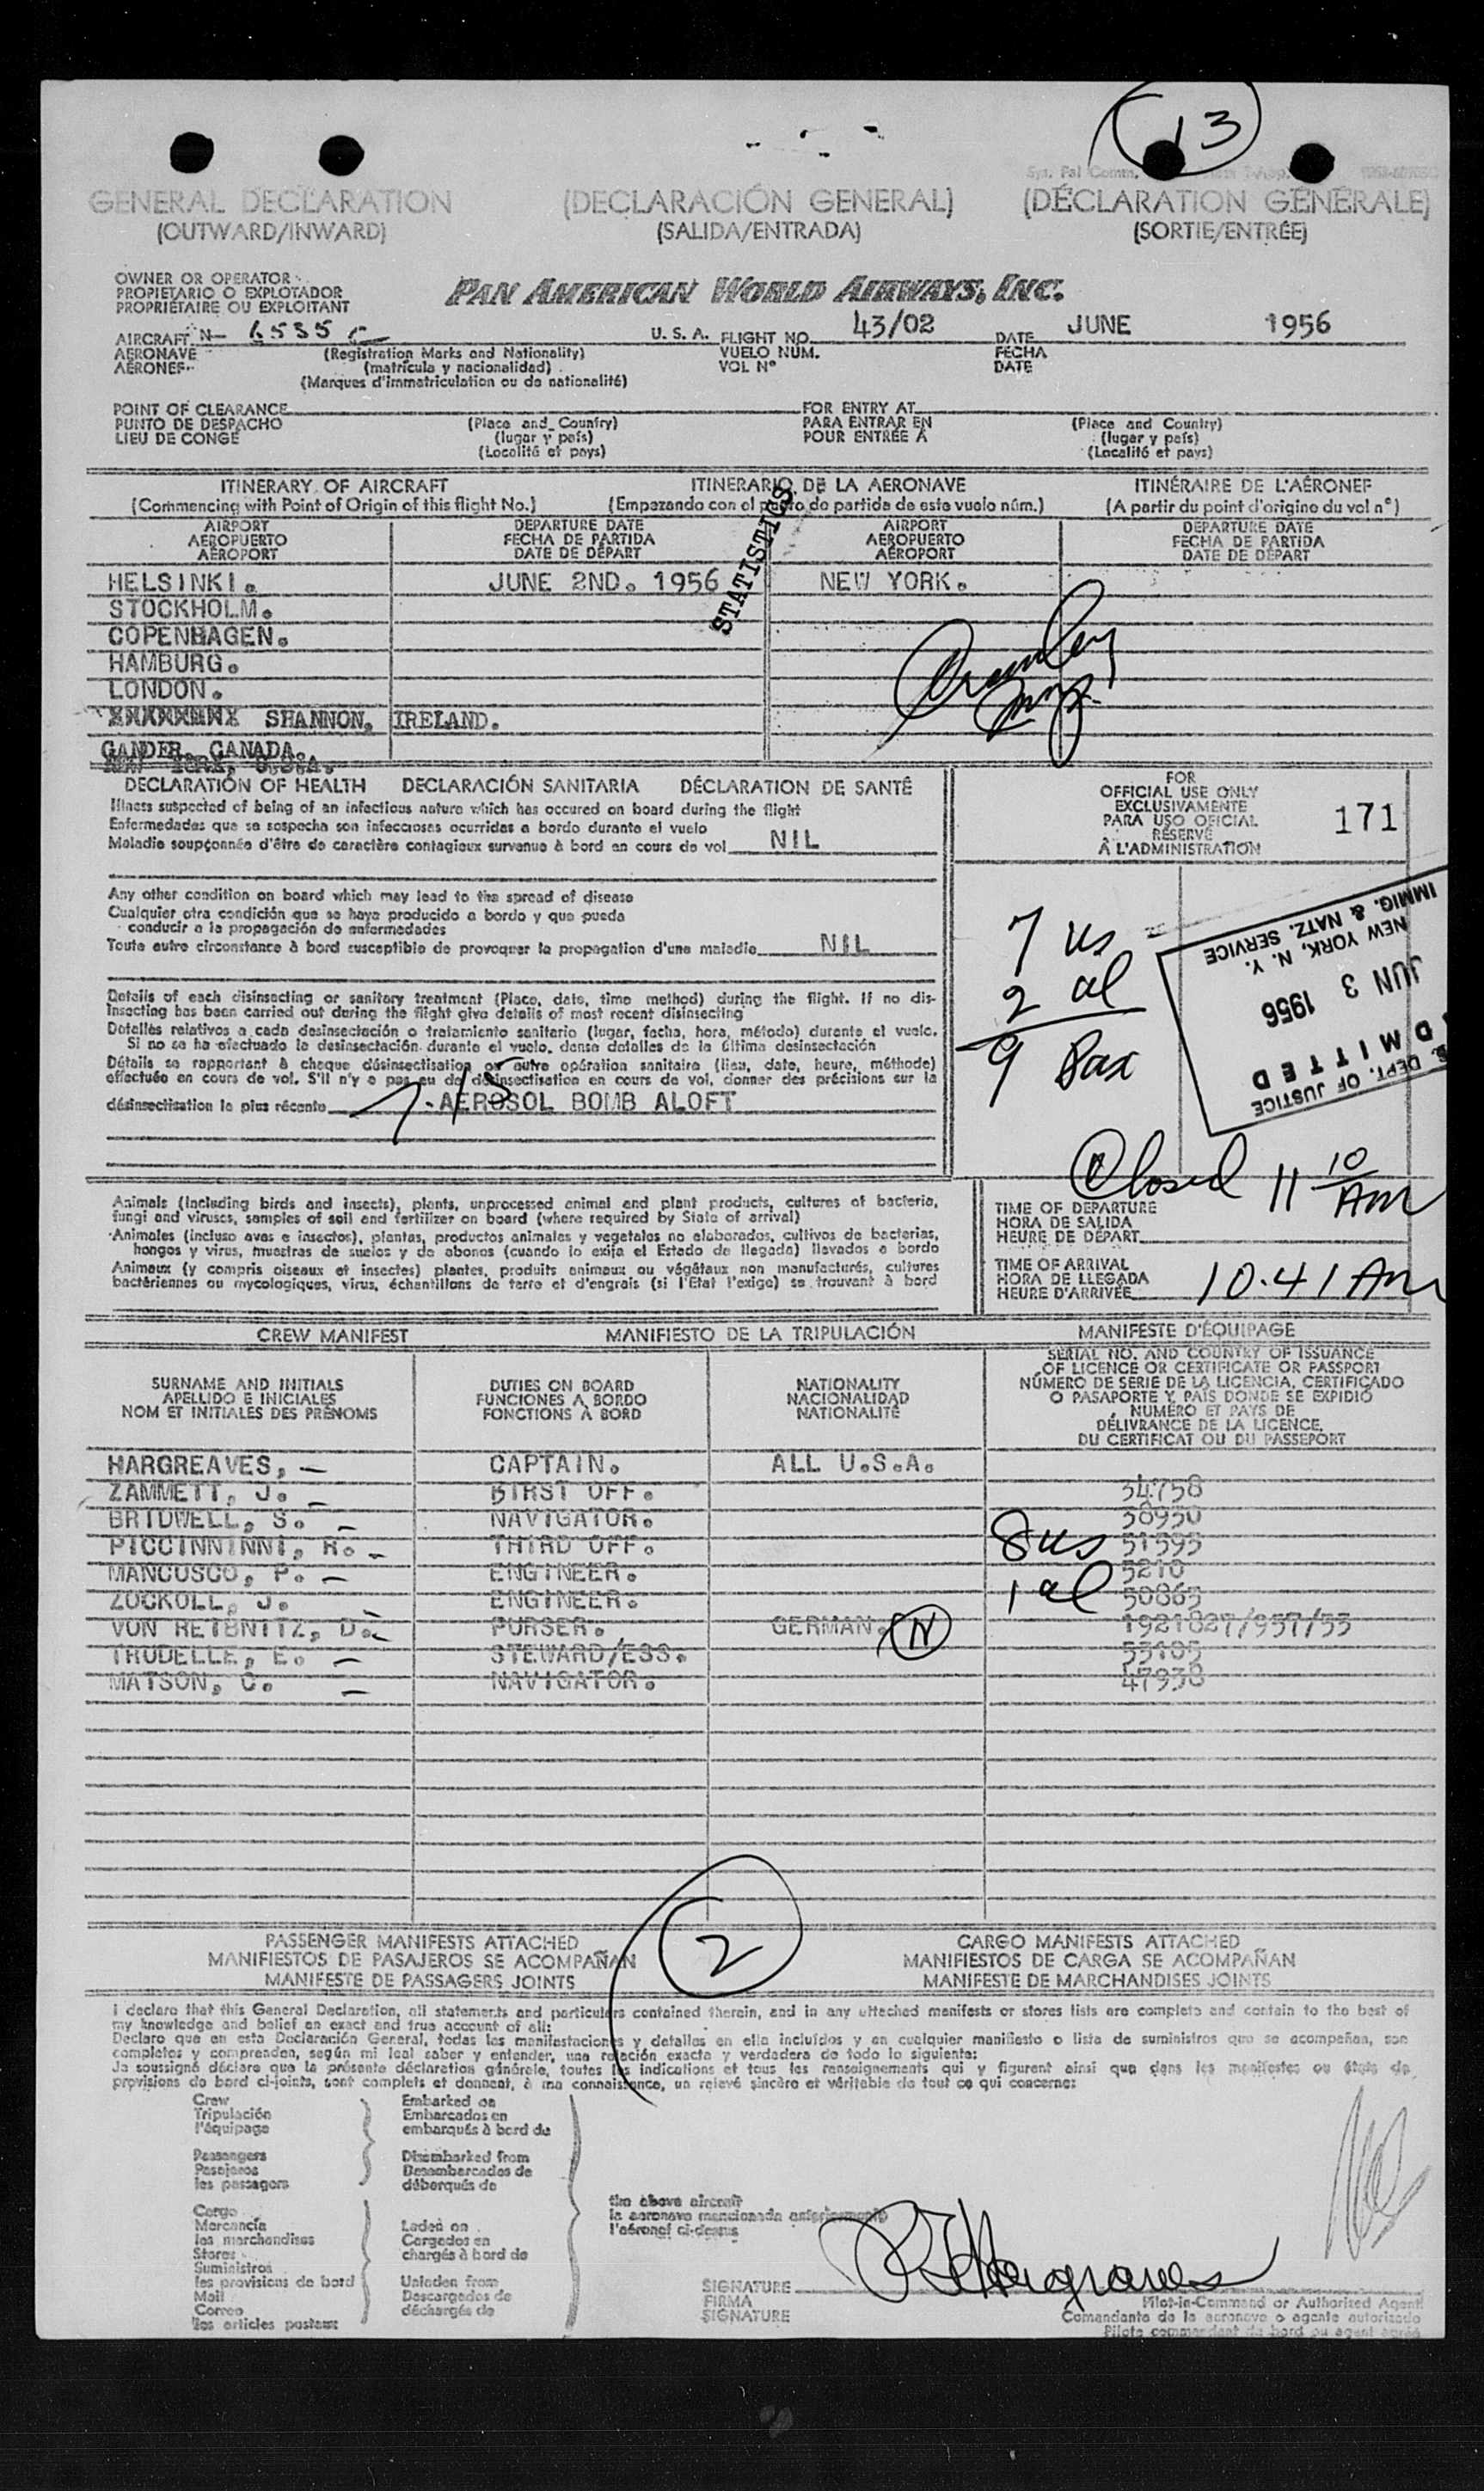 13
GENERAL DECLARATION (DECLARACIÓN GENERAL) (DÉCLARATION GÉNÉRALE)
(OUTWARD/INWARD) (SALIDA/ENTRADA) (SORTIE/ENTRÉE)
OWNER OR OPERATOR
PROPIETARIO O EXPLOTADOR
PROPRIÉTAIRE OU EXPLOITANT
PAN AMERICAN WORLD AIRWAYS, INC.
AIRCRAFT N- 6535 C U. S. A. FLIGHT NO. 43/02 DATE JUNE 1956
AERONAVE (Registration Marks and Nationality) VUELO NÚM. FECHA
AÉRONEF (matrícula y nacionalidad) VOL Nº DATE
(Marques d'immatriculation ou de nationalité)
POINT OF CLEARANCE FOR ENTRY AT
PUNTO DE DESPACHO (Place and Country) PARA ENTRAR EN (Place and Country)
LIEU DE CONGÉ (lugar y país) POUR ENTRÉE À (lugar y país)
(Localité et pays) (Localité et pays)
ITINERARY OF AIRCRAFT ITINERARIO DE LA AERONAVE ITINÉRAIRE DE L'AÉRONEF
(Commencing with Point of Origin of this flight No.) (Empezando con el punto de partida de este vuelo núm.) (A partir du point d'origine du vol nº)
AIRPORT DEPARTURE DATE AIRPORT DEPARTURE DATE
AEROPUERTO FECHA DE PARTIDA AEROPUERTO FECHA DE PARTIDA
AÉROPORT DATE DE DÉPART AÉROPORT DATE DE DÉPART
STATISTICS
HELSINKI. JUNE 2ND. 1956 NEW YORK.
STOCKHOLM.
COPENHAGEN.
HAMBURG.
LONDON.
SHANNON, IRELAND.
GANDER, CANADA.
DECLARATION OF HEALTH DECLARACIÓN SANITARIA DÉCLARATION DE SANTÉ
Illness suspected of being of an infectious nature which has occured on board during the flight
Enfermedades que se sospecha son infecciosas ocurridas a bordo durante el vuelo
Maladie soupçonnée d'être de caractère contagieux survenue à bord en cours de vol NIL
FOR
OFFICIAL USE ONLY
EXCLUSIVAMENTE
PARA USO OFICIAL
RÉSERVÉ
À L'ADMINISTRATION
171
Any other condition on board which may lead to the spread of disease
Cualquier otra condición que se haya producido a bordo y que pueda
conducir a la propagación de enfermedades
Toute autre circonstance à bord susceptible de provoquer la propagation d'une maladie NIL
7 us
2 al
9 Pax
IMMIG. & NATZ. SERVICE
NEW YORK, N. Y.
JUN 3 1956
DMITTED
DEPT. OF JUSTICE
Details of each disinsecting or sanitary treatment (Place, date, time method) during the flight. If no dis-
insecting has been carried out during the flight give details of most recent disinsecting
Detalles relativos a cada desinsectación o tratamiento sanitario (lugar, fecha, hora, método) durante el vuelo.
Si no se ha efectuado la desinsectación durante el vuelo, dense detalles de la última desinsectación
Détails se rapportant à chaque désinsectisation ou autre opération sanitaire (lieu, date, heure, méthode)
effectuée en cours de vol. S'il n'y a pas eu de désinsectisation en cours de vol, donner des précisions sur la
désinsectisation la plus récente AEROSOL BOMB ALOFT
Closed 11 10 AM
Animals (including birds and insects), plants, unprocessed animal and plant products, cultures of bacteria,
fungi and viruses, samples of soil and fertilizer on board (where required by State of arrival)
Animales (incluso aves e insectos), plantas, productos animales y vegetales no elaborados, cultivos de bacterias,
hongos y virus, muestras de suelos y de abonos (cuando lo exija el Estado de llegada) llevados a bordo
Animaux (y compris oiseaux et insectes) plantes, produits animaux ou végétaux non manufacturés, cultures
bactériennes ou mycologiques, virus, échantillons de terre et d'engrais (si l'Etat l'exige) se trouvant à bord
TIME OF DEPARTURE
HORA DE SALIDA
HEURE DE DÉPART
TIME OF ARRIVAL
HORA DE LLEGADA
HEURE D'ARRIVÉE 10.41 AM
CREW MANIFEST MANIFIESTO DE LA TRIPULACIÓN MANIFESTE D'ÉQUIPAGE
SURNAME AND INITIALS
APELLIDO E INICIALES
NOM ET INITIALES DES PRÉNOMS
DUTIES ON BOARD
FUNCIONES A BORDO
FONCTIONS À BORD
NATIONALITY
NACIONALIDAD
NATIONALITÉ
SERIAL NO. AND COUNTRY OF ISSUANCE
OF LICENCE OR CERTIFICATE OR PASSPORT
NÚMERO DE SERIE DE LA LICENCIA, CERTIFICADO
O PASAPORTE Y PAÍS DONDE SE EXPIDIÓ
NUMÉRO ET PAYS DE
DÉLIVRANCE DE LA LICENCE,
DU CERTIFICAT OU DU PASSEPORT
HARGREAVES, — CAPTAIN. ALL U.S.A.
ZAMMETT, J. — FIRST OFF. 34758
BRIDWELL, S. — NAVIGATOR. 38930
PICCINNINNI, R. — THIRD OFF. 8 us 51595
MANCUSCO, P. — ENGINEER. 5210
ZOCKOLL, J. — ENGINEER. 1 al 50865
VON REIBNITZ, D. — PURSER. GERMAN. N 1921827/957/53
TRUDELLE, E. — STEWARD/ESS. 53105
MATSON, C. — NAVIGATOR. 47938
2
PASSENGER MANIFESTS ATTACHED CARGO MANIFESTS ATTACHED
MANIFIESTOS DE PASAJEROS SE ACOMPAÑAN MANIFIESTOS DE CARGA SE ACOMPAÑAN
MANIFESTE DE PASSAGERS JOINTS MANIFESTE DE MARCHANDISES JOINTS
I declare that this General Declaration, all statements and particulars contained therein, and in any attached manifests or stores lists are complete and contain to the best of
my knowledge and belief an exact and true account of all:
Declaro que en esta Declaración General, todas las manifestaciones y detalles en ella incluídos y en cualquier manifiesto o lista de suministros que se acompañan, son
completos y comprenden, según mi leal saber y entender, una relación exacta y verdadera de todo lo siguiente:
Je soussigné déclare que la présente déclaration générale, toutes les indications et tous les renseignements qui y figurent ainsi que dans les manifestes ou états de
provisions de bord ci-joints, sont complets et donnent, à ma connaissance, un relevé sincère et véritable de tout ce qui concerne:
Crew Embarked on
Tripulación Embarcados en
l'équipage embarqués à bord de
Passengers Disembarked from
Pasajeros Desembarcados de
les passagers débarqués de
the above aircraft
la aeronave mencionada anteriormente
l'aéronef ci-dessus
Cargo
Mercancía Laden on
les marchandises Cargados en
Stores chargés à bord de
Suministros
les provisions de bord Unladen from
Mail Descargados de
Correo déchargés de
les articles postaux
SIGNATURE
FIRMA
SIGNATURE
Hargreaves
Pilot-in-Command or Authorized Agent
Comandante de la aeronave o agente autorizado
Pilote commandant de bord ou agent agréé